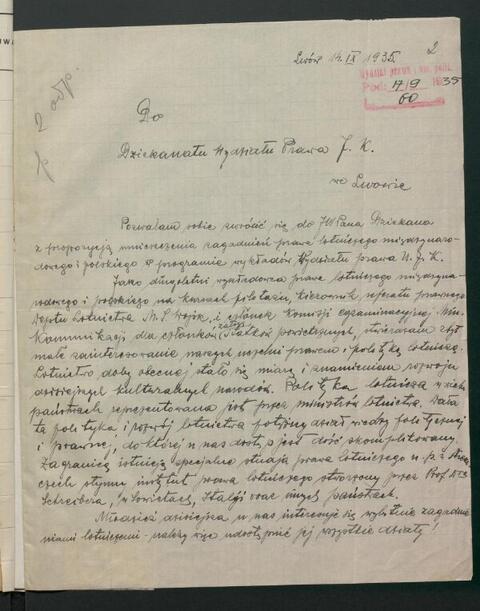 Lwów 14.IX 1935
2
Wydział prawa i um. polit.
Pod: 17/9 1935
60
2 odp.
Do
Dziekanatu Wydziału Prawa J. K.
we Lwowie
Pozwalam sobie zwrócić się do JWPana Dziekana
z propozycją umieszczenia zagadnień prawa lotniczego międzynaro-
dowego i polskiego w programie wykładów Wydziału prawa U. J. K.
Jako długoletni wykładowca prawa lotniczego międzyna-
rodowego i polskiego na kursach pilotażu, kierownik referatu prawnego
Deptu Lotnictwa M. S. Wojsk. i członek komisji egzaminacyjnej Min.
Kommunikacji dla członków załogi statków powietrznych, stwierdzam zbyt
małe zainteresowanie naszych uczelni prawem i polityką lotniczą.
Lotnictwo doby obecnej stało się miarą i znamieniem rozwoju
dzisiejszych kulturalnych narodów. Polityka lotnicza w wielu
państwach reprezentowana jest przez ministrów lotnictwa. Dała
ta polityka i rozwój lotnictwa potężny dział wiedzy politycznej
i prawnej, do której u nas dostęp jest dość skomplikowany.
Zagranicą istnieją specjalne studja prawa lotniczego n. p. w
czech słynny instytut prawa lotniczego stworzony przez Prof. Dra
Schreibera, w Sowietach, Italji oraz innych państwach.
Młodzież dzisiejsza u nas interesuje się wybitnie zagadnie-
niami lotniczemi - należy więc udostępnić jej wszystkie działy